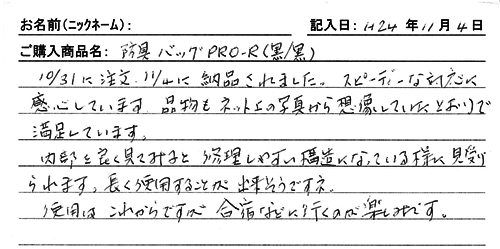 お名前(ニックネーム): 記入日: H24年11月4日
ご購入商品名: 防具バッグPRO-R(黒/黒)
10/31に注文、11/4に納品されました。スピーディーな対応に
感心しています。品物もネット上の写真から想像していたとおりで
満足しています。
内部を良く見てみると修理しやすい構造になっている様に見受け
られます。長く使用することが出来そうですネ。
使用はこれからですが合宿などに行くのが楽しみです。